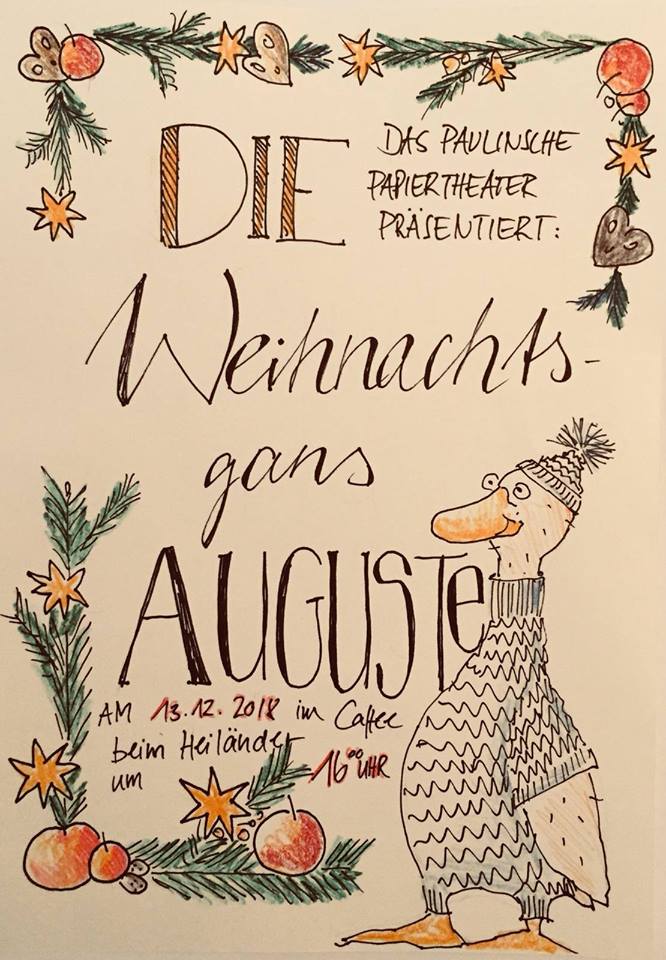 DIE
DAS PAULINSCHE
PAPIERTHEATER
PRÄSENTIERT:
Weihnachts-
gans
AUGUSTe
AM 13.12.2018 im Caffee
beim Heiländer
um 16⁰⁰ UHR